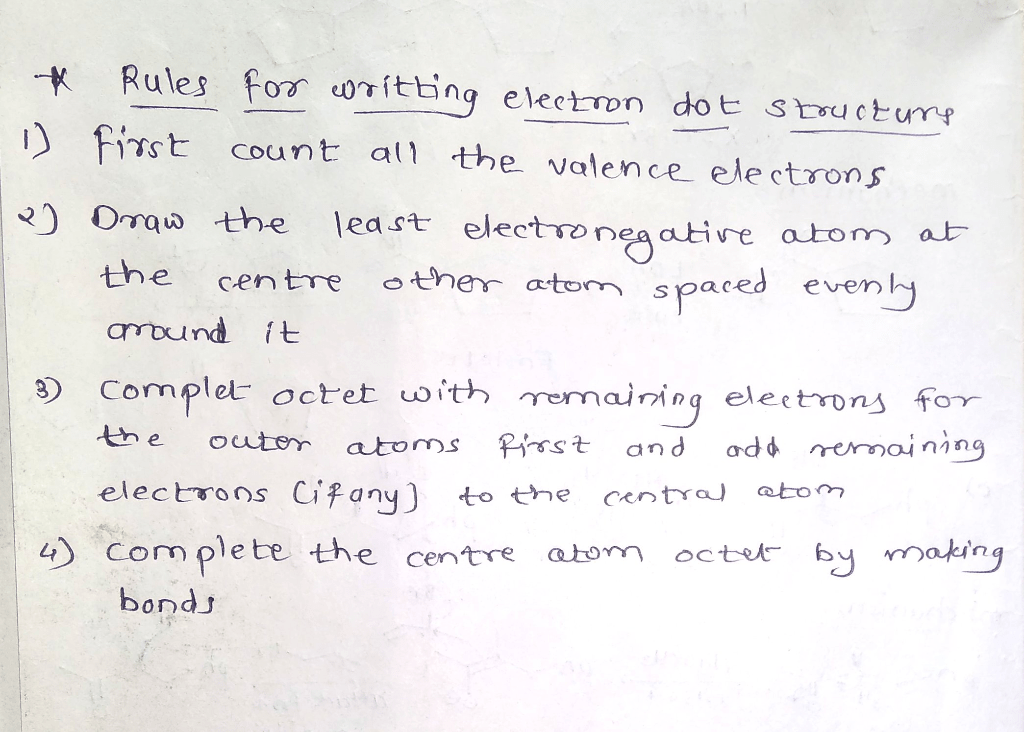 * Rules for writting electron dot structure
1) first count all the valence electrons
2) Draw the least electronegative atom at
the centre other atom spaced evenly
around it
3) complet octet with remaining electrons for
the outer atoms first and add remaining
electrons (if any) to the central atom
4) complete the centre atom octet by making
bonds